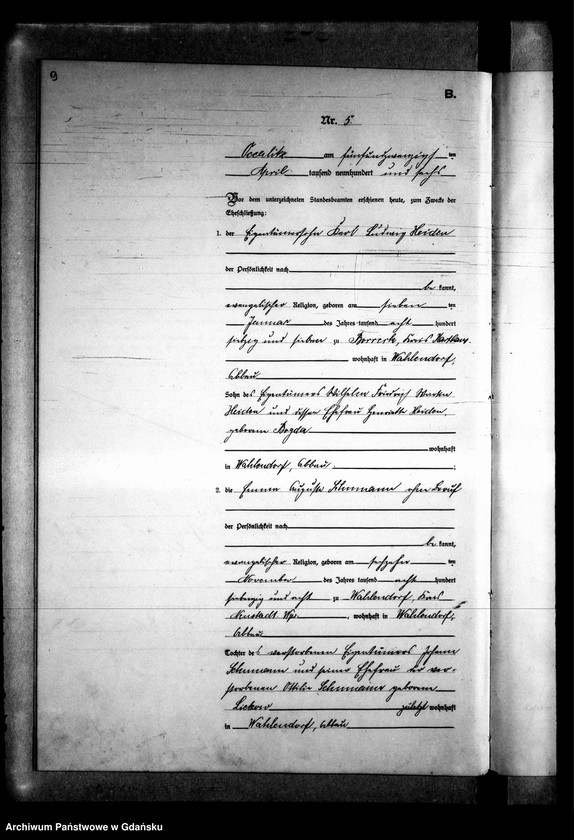 9
B.
Nr. 5.
am fünfundzwanzigs ten
April tausend neunhundert und sechs
Vor dem unterzeichneten Standesbeamten erschienen heute, zum Zwecke der
Eheschließung:
1. der Eigentümersohn Karl Ludwig Heiden
der Persönlichkeit nach
be kannt,
evangelischer Religion, geboren am sieben ten
Januar des Jahres tausend acht hundert
siebzig und sieben zu Kreis Karthaus
wohnhaft in Wahlendorf,
Abbau
Sohn des Eigentümers Wilhelm Friedrich
Heiden und dessen Ehefrau Henriette Heiden,
geborene Bogda
wohnhaft
in Wahlendorf, Abbau ;
2. die Emma Auguste Schumann ohne Beruf
der Persönlichkeit nach
be kannt,
evangelischer Religion, geboren am sechzehn ten
November des Jahres tausend acht hundert
siebenzig und acht zu Wahlendorf, Kreis
Neustadt Wpr. , wohnhaft in Wahlendorf,
Abbau
Tochter des verstorbenen Eigentümers Johann
Schumann und seiner Ehefrau der ver-
storbenen Ottilie Schumann geborene
zuletzt wohnhaft
in Wahlendorf, Abbau
Archiwum Państwowe w Gdańsku